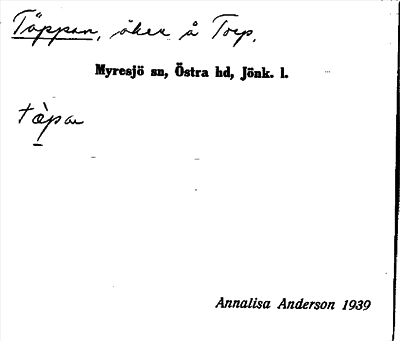 Täppan, åker å Torp.
Myresjö sn, Östra hd, Jönk. l.
tæ̀pa
Annalisa Anderson 1939